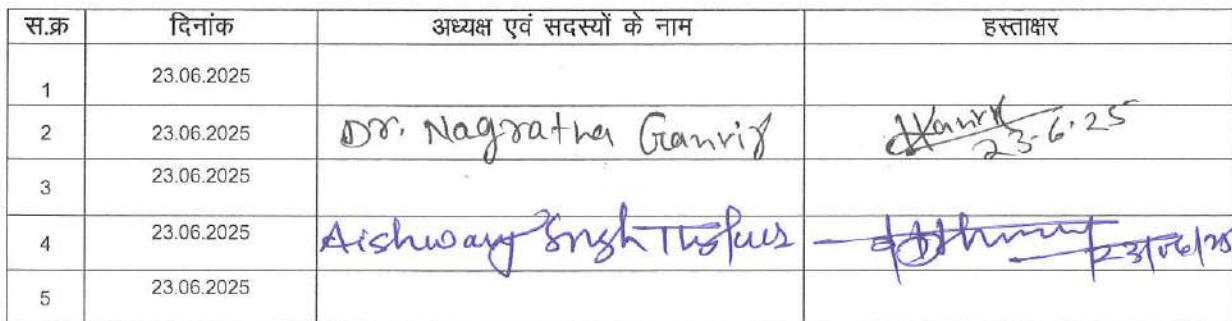 स.क्र दिनांक अध्यक्ष एवं सदस्यों के नाम हस्ताक्षर
1 23.06.2025
2 23.06.2025 Dr. Nagratna Ganvir 23-6-25
3 23.06.2025
4 23.06.2025 Aishwary Singh 23/06/25
5 23.06.2025